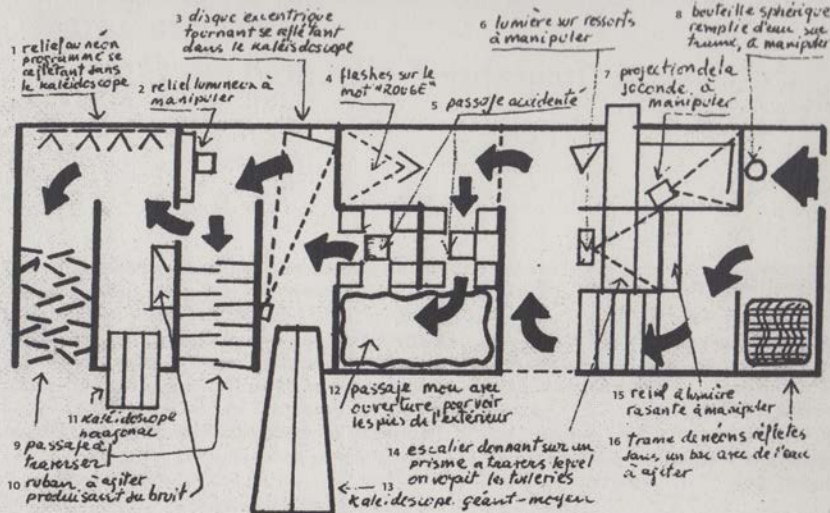 1 relief au néon
programmé se
reflétant dans
le kaléidoscope
2 relief lumineux à
manipuler
3 disque excentrique
tournant se reflétant
dans le kaléidoscope
4 flashes sur le
mot "ROUGE"
5 passage accidenté
6 lumière sur ressorts
à manipuler
7 projection de la
seconde à
manipuler
8 bouteille sphérique
remplie d'eau sur
trame, à manipuler
9 passage à
traverser
10 ruban à agiter
produisant du bruit
11 kaléidoscope
hexagonal
12 passage mou avec
ouverture pour voir
les pies de l'extérieur
13
kaleidoscope géant-moyen
14 escalier donnant sur un
prisme a travers lequel
on voyait les tuileries
15 relief à lumière
rasante à manipuler
16 trame de néons réfletés
dans un bac avec de l'eau
à agiter